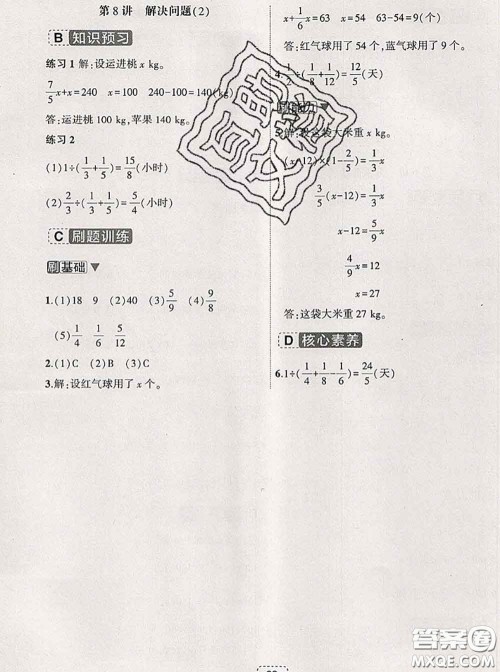 第8讲 解决问题(2)
B 知识预习
练习1 解:设运进桃 x kg.
7/5x+x=240 x=100 240-100=140(kg)
答:运进桃 100 kg,苹果 140 kg.
练习2
(1)1÷(1/3+1/5)=15/8(小时)
(2)1÷(1/3+1/5)=5/4(小时)
C 刷题训练
刷基础
1.(1)18 9 (2)40 (3)5/9 (4)9/8
(5)1/4 1/6 5/12
2.(1)C (2)B (3)C
3.解:设红气球用了 x 个.
x+1/6x=63 x=54 63-54=9(个)
答:红气球用了 54 个,蓝气球用了 9 个.
4.1/2÷(1/8+1/12)=12/5(天)
5.解:设这袋大米重 x kg.
3/5(x-12)=1/3x
x-12=5/9x
4/9x=12
x=27
答:这袋大米重 27 kg.
D 核心素养
6.1÷(1/4+1/8-1/6)=24/5(天)
答案圈
MXQE.COM